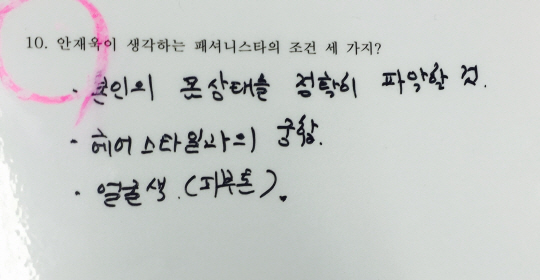 10. 안재욱이 생각하는 패셔니스타의 조건 세 가지?
· 본인의 몸상태를 정확히 파악할 것.
· 헤어스타일과의 궁합.
· 얼굴색.(피부톤).